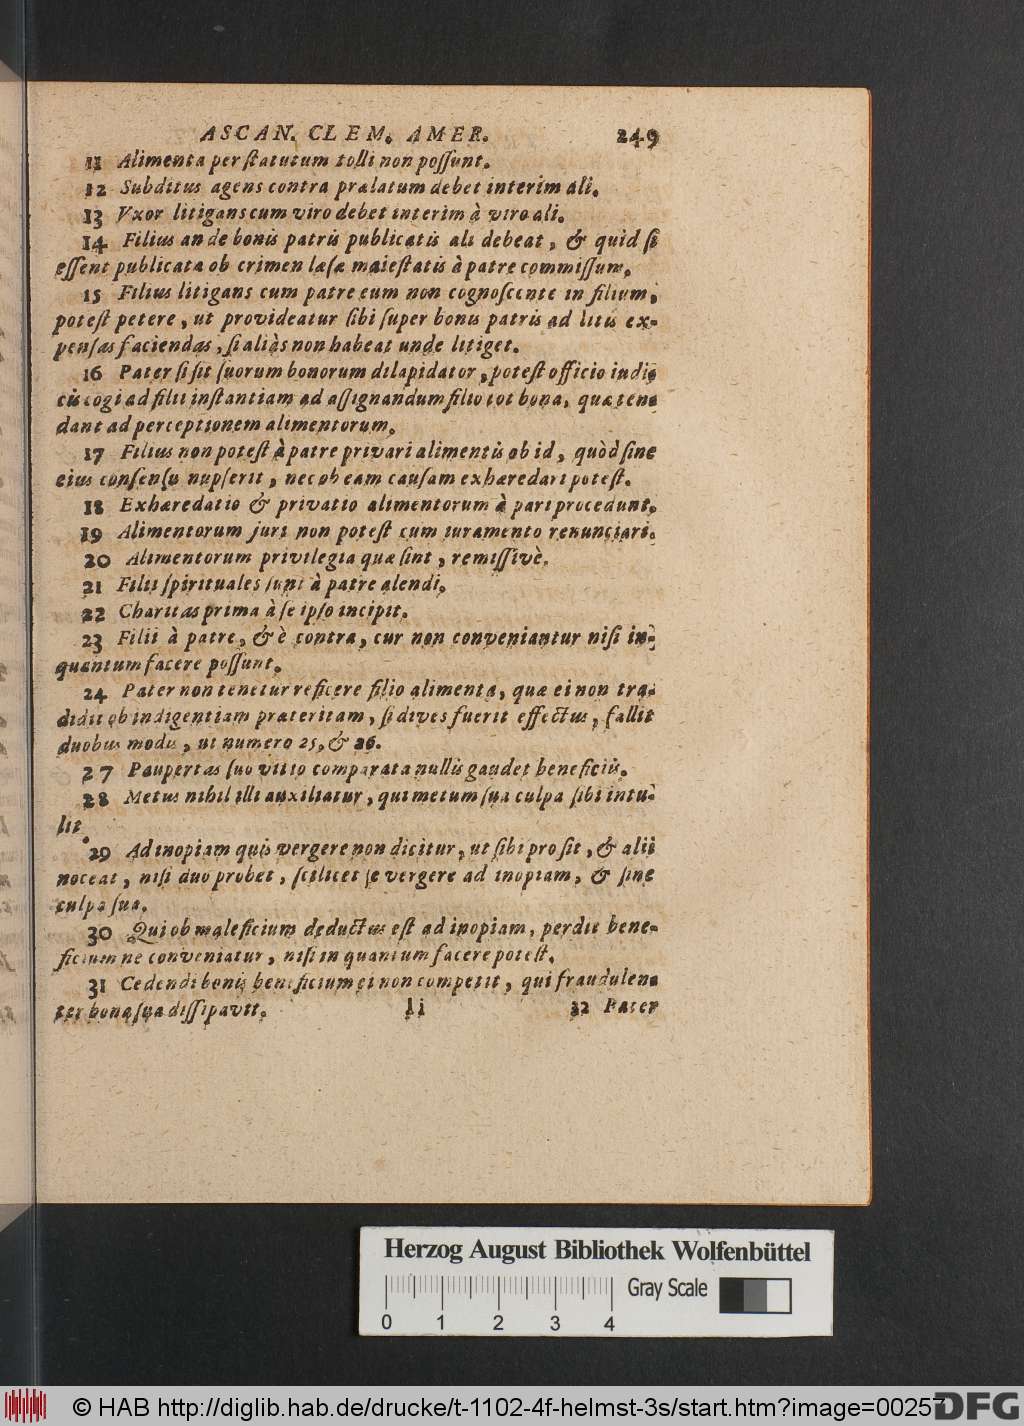 ASCAN. CLEM. AMER. 249
11 Alimenta per ſtatutum tolli non poſſunt.
12 Subditus agens contra prælatum debet interim ali.
13 Vxor litigans cum viro debet interim à viro ali.
14 Filius an de bonis patris publicatis ali debeat, & quid ſi
eſſent publicata ob crimen læſæ maieſtatis à patre commiſſum.
15 Filius litigans cum patre eum non cognoſcente in filium,
poteſt petere, ut provideatur ſibi ſuper bonis patris ad litis ex-
penſas faciendas, ſi aliàs non habeat unde litiget.
16 Pater ſi ſit ſuorum bonorum dilapidator, poteſt officio iudi-
cis cogi ad filii inſtantiam ad aſſignandum filio tot bona, quæ ten-
dant ad perceptionem alimentorum.
17 Filius non poteſt à patre privari alimentis ob id, quòd ſine
eius conſenſu nupſerit, nec ob eam cauſam exhæredari poteſt.
18 Exhæredatio & privatio alimentorum à pari procedunt.
19 Alimentorum juri non poteſt cum iuramento renunciari.
20 Alimentorum privilegia quæ ſint, remiſſivè.
21 Filii ſpirituales ſunt à patre alendi.
22 Charitas prima à ſe ipſo incipit.
23 Filii à patre, & è contra, cur non conveniantur niſi in-
quantum facere poſſunt.
24 Pater non tenetur reficere filio alimenta, quæ ei non tra-
didit ob indigentiam præteritam, ſi dives fuerit effectus, fallit
duobus modis, ut numero 25, & 26.
27 Paupertas ſuo vitio comparata nullis gaudet beneficiis.
28 Metus nihil illi auxiliatur, qui metum ſua culpa ſibi intu-
lit.
29 Ad inopiam quis vergere non dicitur, ut ſibi proſit, & alii
noceat, niſi duo probet, ſcilicet ſe vergere ad inopiam, & ſine
culpa ſua.
30 Qui ob maleficium deductus eſt ad inopiam, perdit bene-
ficium ne conveniatur, niſi in quantum facere poteſt.
31 Cedendi bonis beneficium ei non competit, qui fraudulen-
ter bona ſua diſſipavit. Ii 32 Pater
Herzog August Bibliothek Wolfenbüttel
Gray Scale
0 1 2 3 4
© HAB http://diglib.hab.de/drucke/t-1102-4f-helmst-3s/start.htm?image=00257
DFG